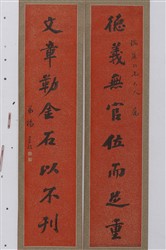 德義無官位而足重
文章勒金石以不刊